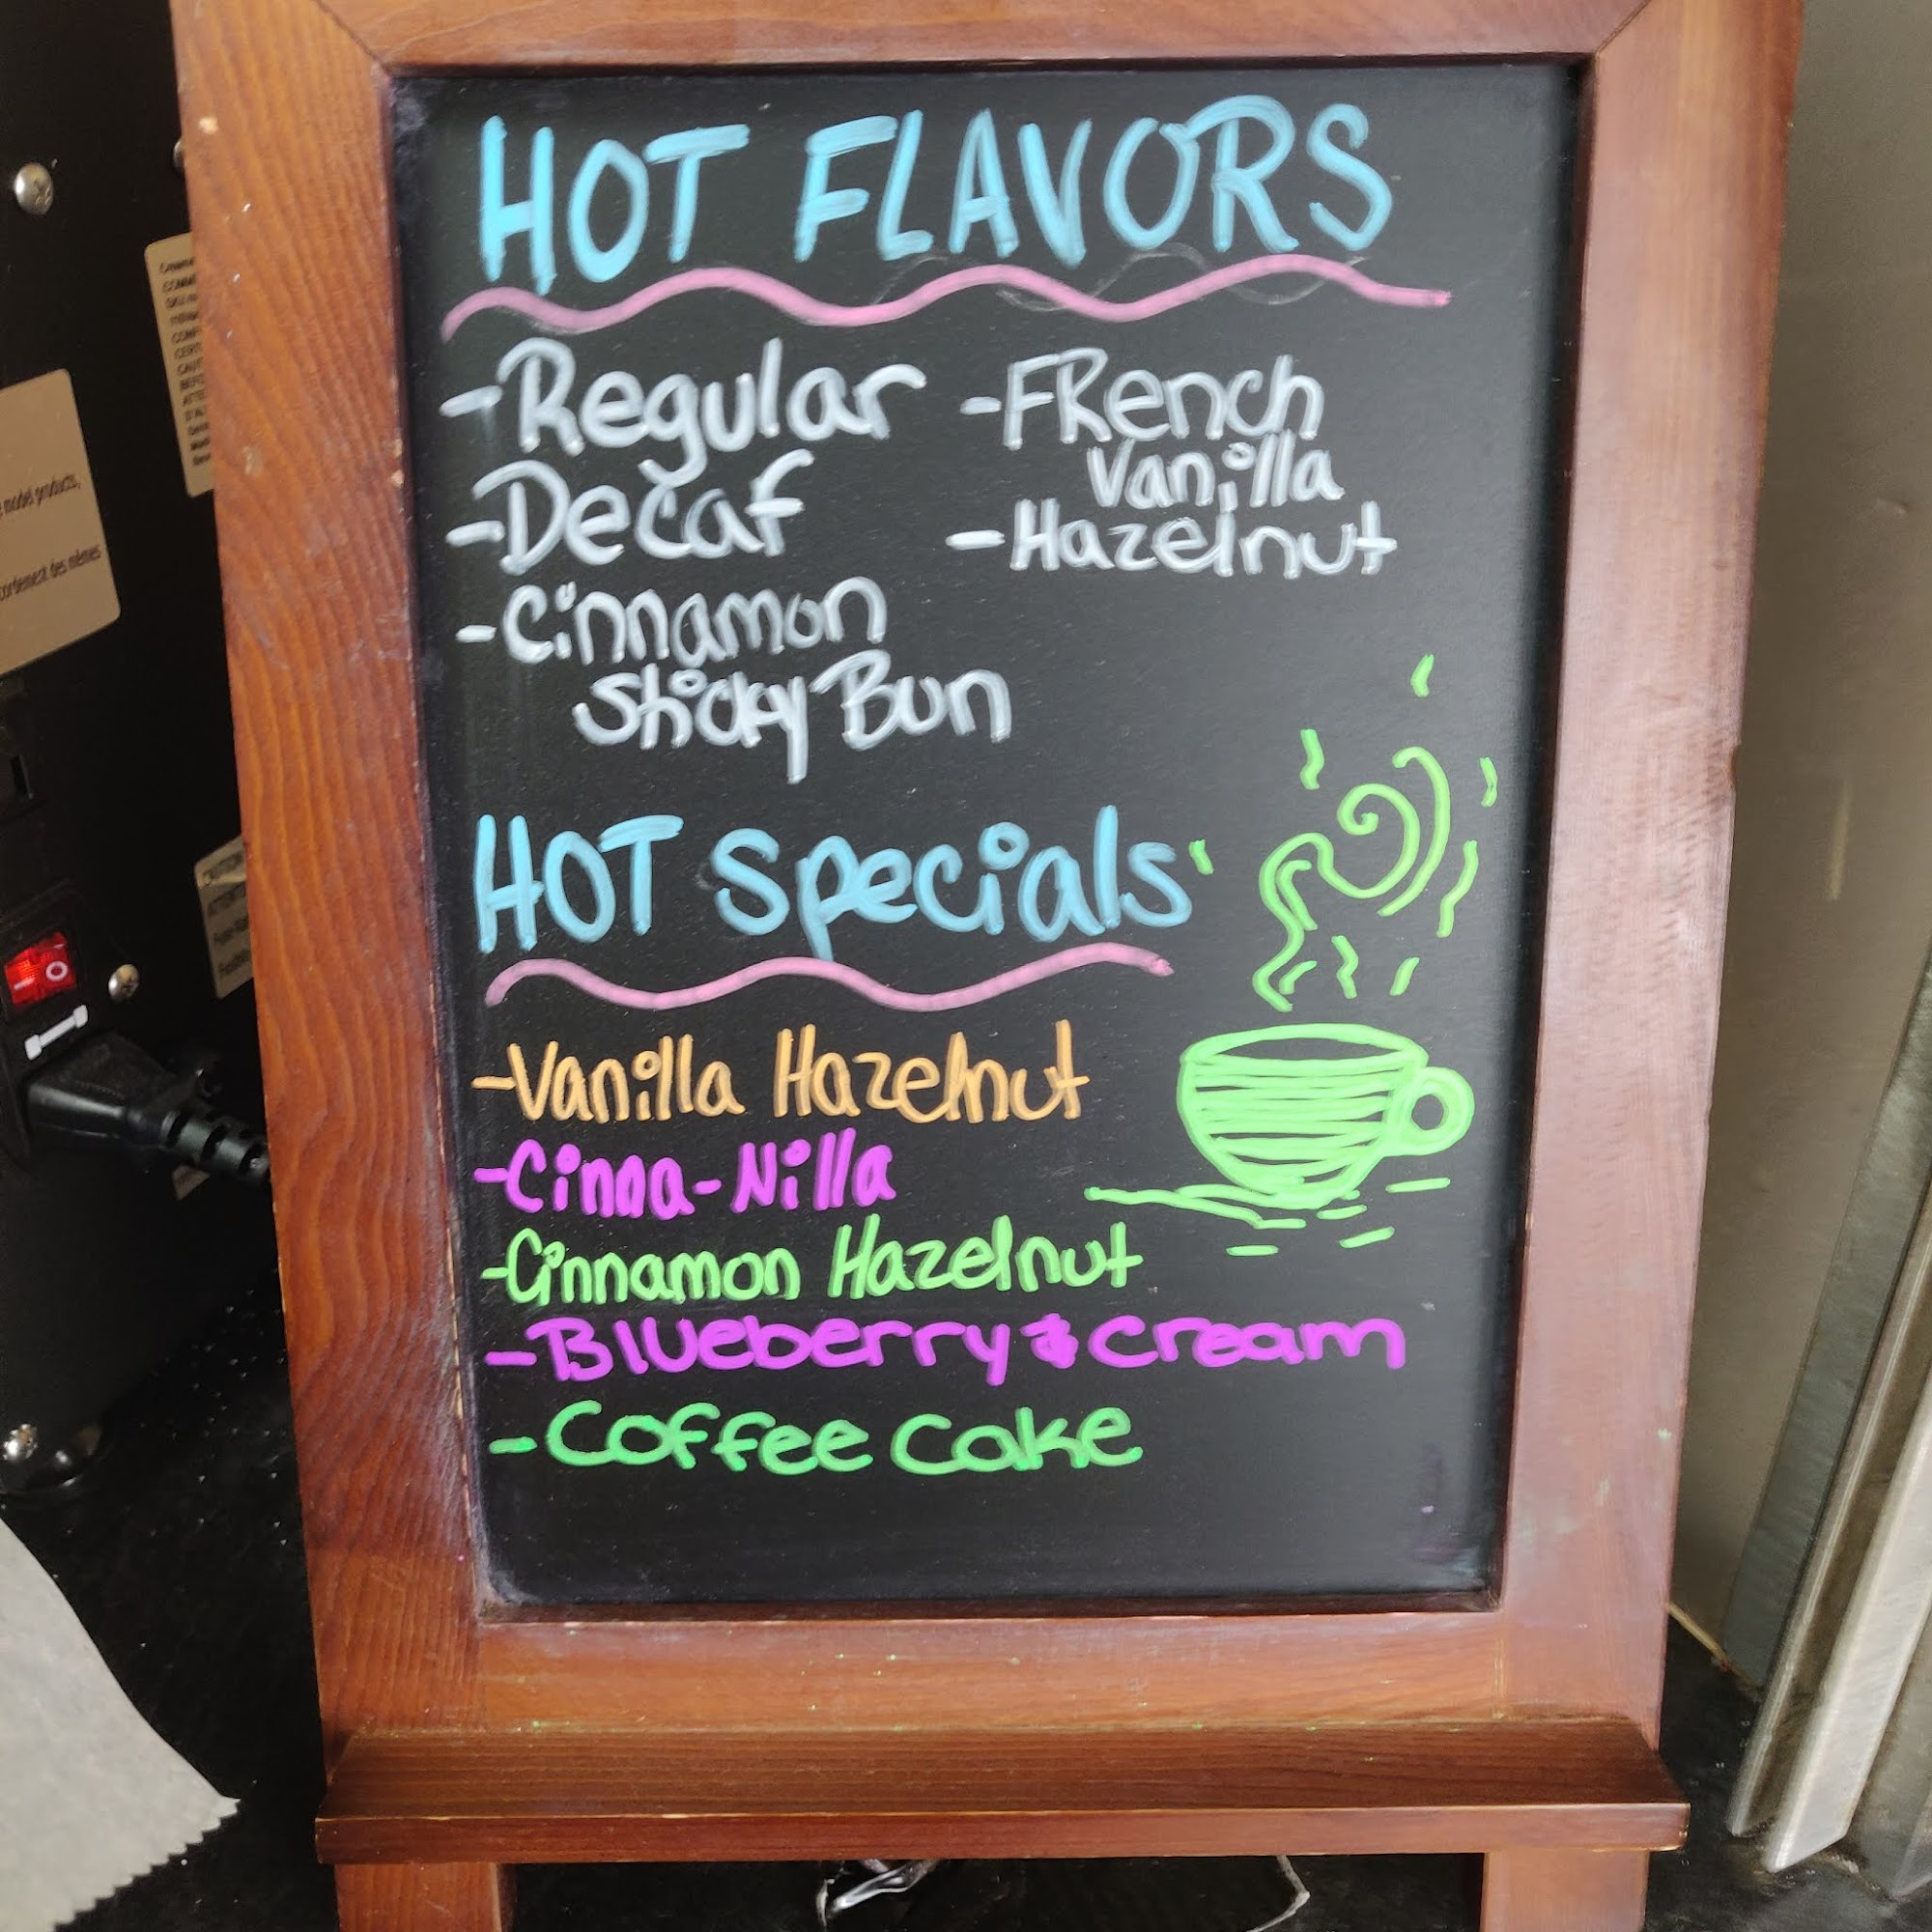 HOT FLAVORS
-Regular
-Decaf
-Cinnamon
Sticky Bun
-FRench
Vanilla
-Hazelnut
HOT Specials
-Vanilla Hazelnut
-Cinna-Nilla
-Cinnamon Hazelnut
-Blueberry & Cream
-Coffee Cake
model products,
cordement des mêmes